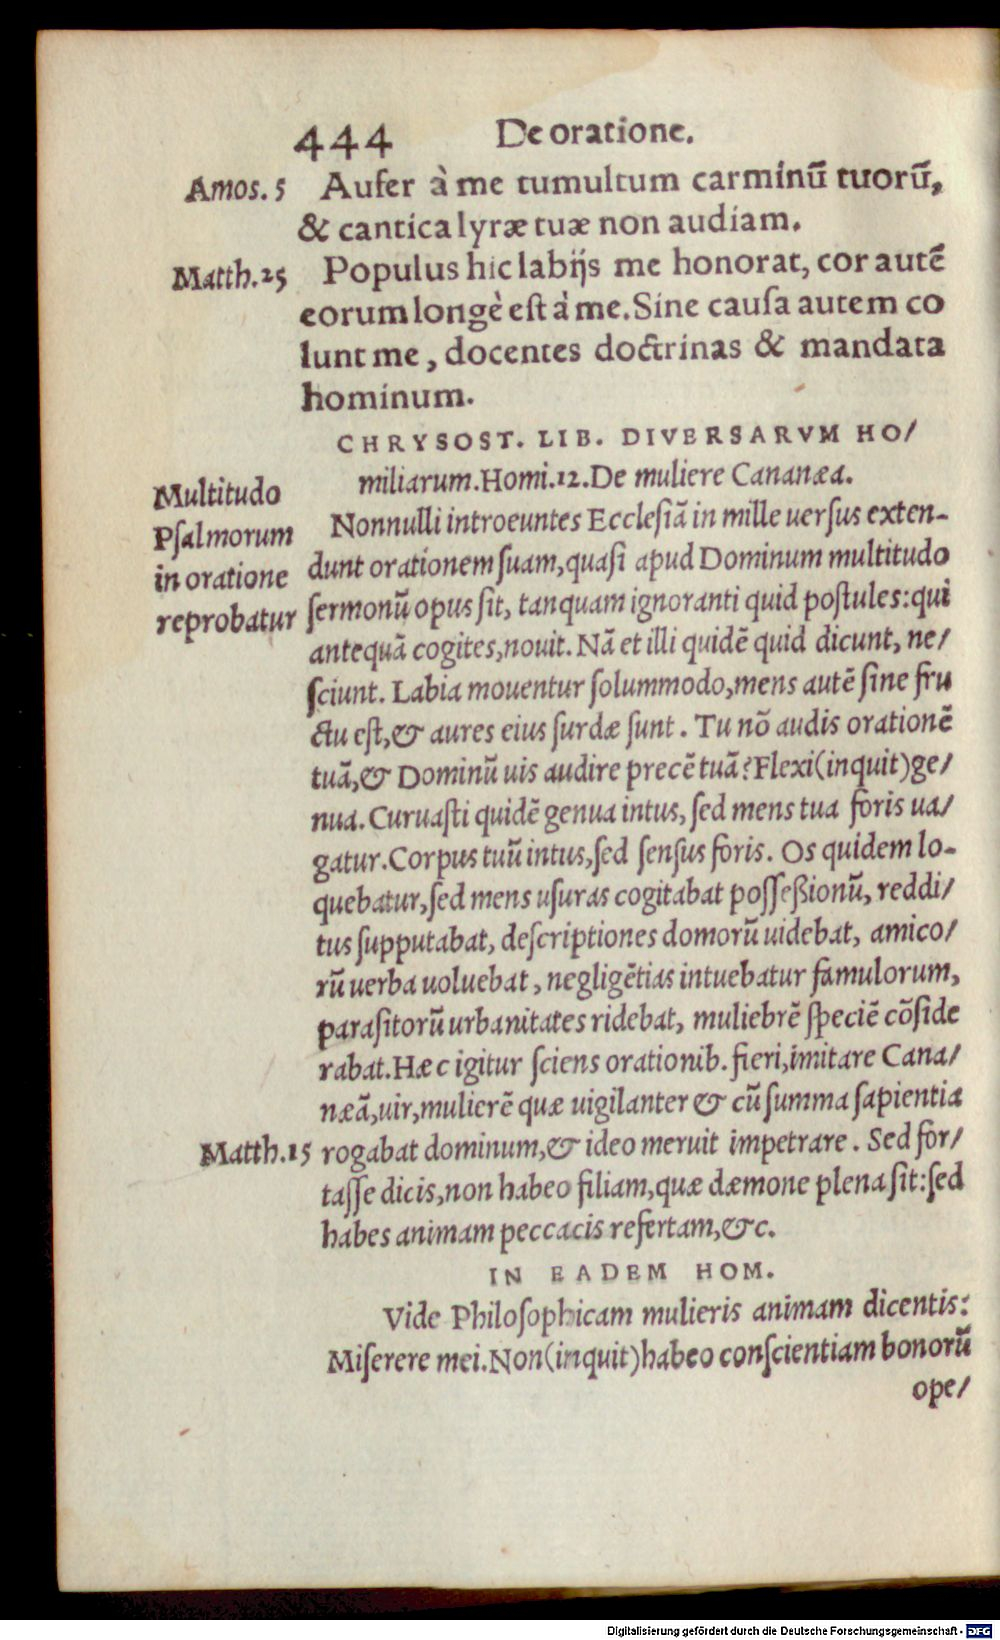 444 De oratione.
Amos. 5 Aufer à me tumultum carminũ tuorũ,
& cantica lyræ tuæ non audiam.
Matth.25 Populus hic labijs me honorat, cor autẽ
eorum longè eſt à me. Sine cauſa autem co
lunt me, docentes doctrinas & mandata
hominum.
CHRYSOST. LIB. DIVERSARVM HO/
miliarum. Homi.12. De muliere Cananæa.
Multitudo
Pſalmorum
in oratione
reprobatur
Nonnulli introeuntes Eccleſiã in mille uerſus exten-
dunt orationem ſuam, quaſi apud Dominum multitudo
ſermonũ opus ſit, tanquam ignoranti quid poſtules: qui
antequã cogites, nouit. Nã et illi quidẽ quid dicunt, ne/
ſciunt. Labia mouentur ſolummodo, mens autẽ ſine fru
ctu eſt, & aures eius ſurdæ ſunt. Tu nõ audis orationẽ
tuã, & Dominũ uis audire precẽ tuã? Flexi (inquit) ge/
nua. Curuaſti quidẽ genua intus, ſed mens tua foris ua/
gatur. Corpus tuũ intus, ſed ſenſus foris. Os quidem lo-
quebatur, ſed mens uſuras cogitabat poſſeßionũ, reddi/
tus ſupputabat, deſcriptiones domorũ uidebat, amico/
rũ uerba uoluebat, negligẽtias intuebatur famulorum,
paraſitorũ urbanitates ridebat, muliebrẽ ſpeciẽ cõſide
rabat. Hæc igitur ſciens orationib. fieri, imitare Cana/
næã, uir, mulierẽ quæ uigilanter & cũ ſumma ſapientia
Matth.15 rogabat dominum, & ideo meruit impetrare. Sed for/
taſſe dicis, non habeo filiam, quæ dæmone plena ſit: ſed
habes animam peccacis refertam, &c.
IN EADEM HOM.
Vide Philoſophicam mulieris animam dicentis:
Miſerere mei. Non (inquit) habeo conſcientiam bonorũ
ope/
Digitalisierung gefördert durch die Deutsche Forschungsgemeinschaft - DFG